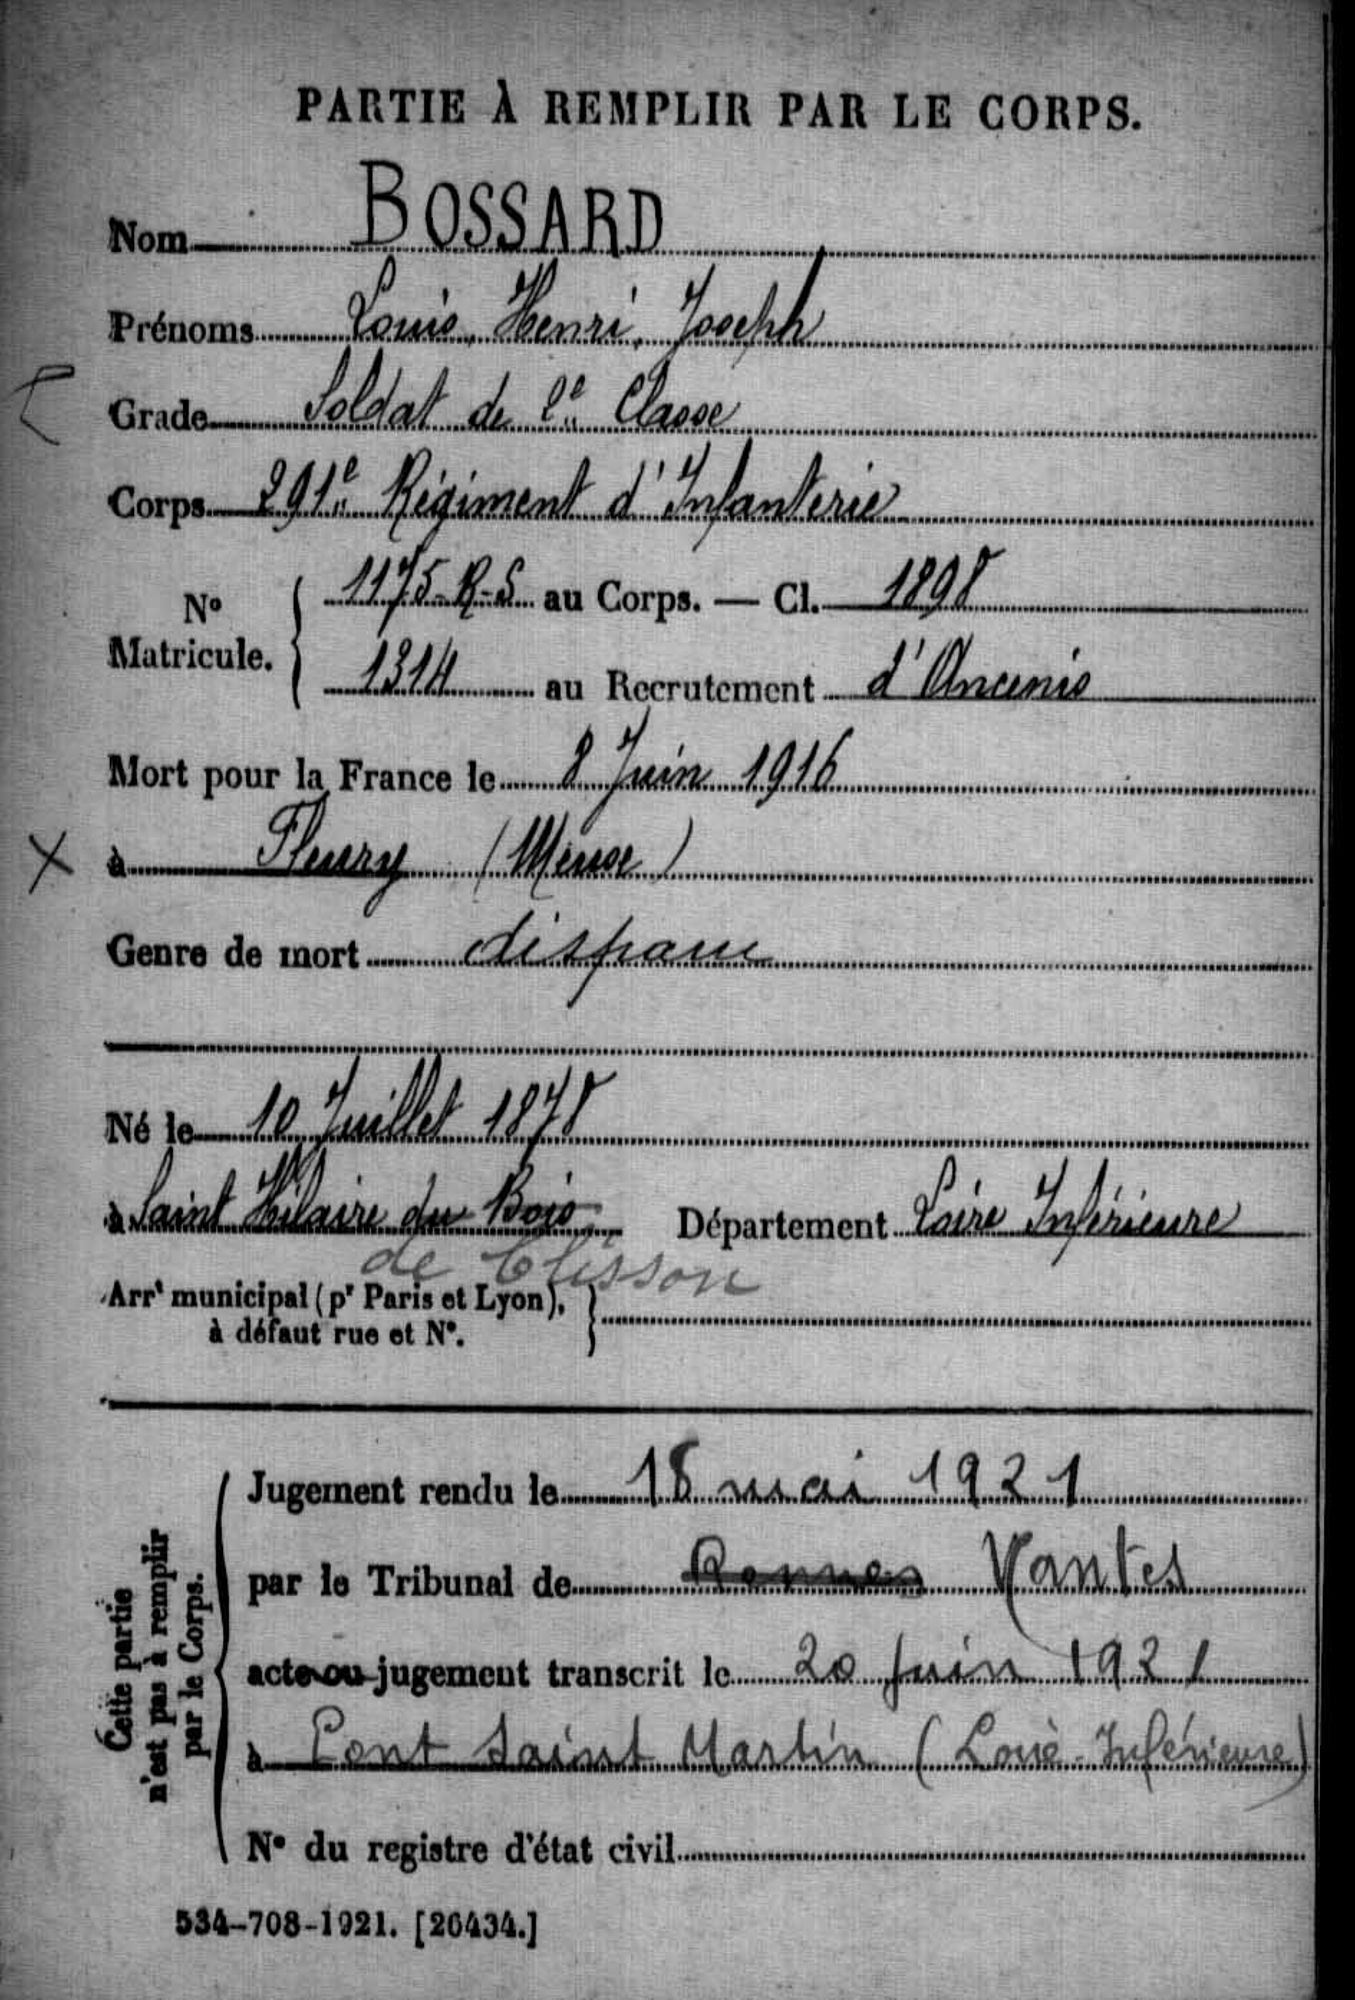 PARTIE À REMPLIR PAR LE CORPS.
Nom BOSSARD
Prénoms Louis, Henri, Joseph
Grade Soldat de 2e Classe
Corps 291e Régiment d'Infanterie
No Matricule. { 1175-R-S au Corps. — Cl. 1898
1314 au Recrutement d'Ancenis
Mort pour la France le 8 Juin 1916
à Fleury (Meuse)
Genre de mort disparu
Né le 10 Juillet 1878
à Saint Hilaire du Bois Département Loire Inférieure
de Clisson
Arrt municipal (pr Paris et Lyon), à défaut rue et No. }
Cette partie n'est pas à remplir par le Corps.
Jugement rendu le 18 mai 1921
par le Tribunal de Rennes Nantes
acte ou jugement transcrit le 20 juin 1921
à Pont Saint Martin (Loire-Inférieure)
No du registre d'état civil
534-708-1921. [26434.]